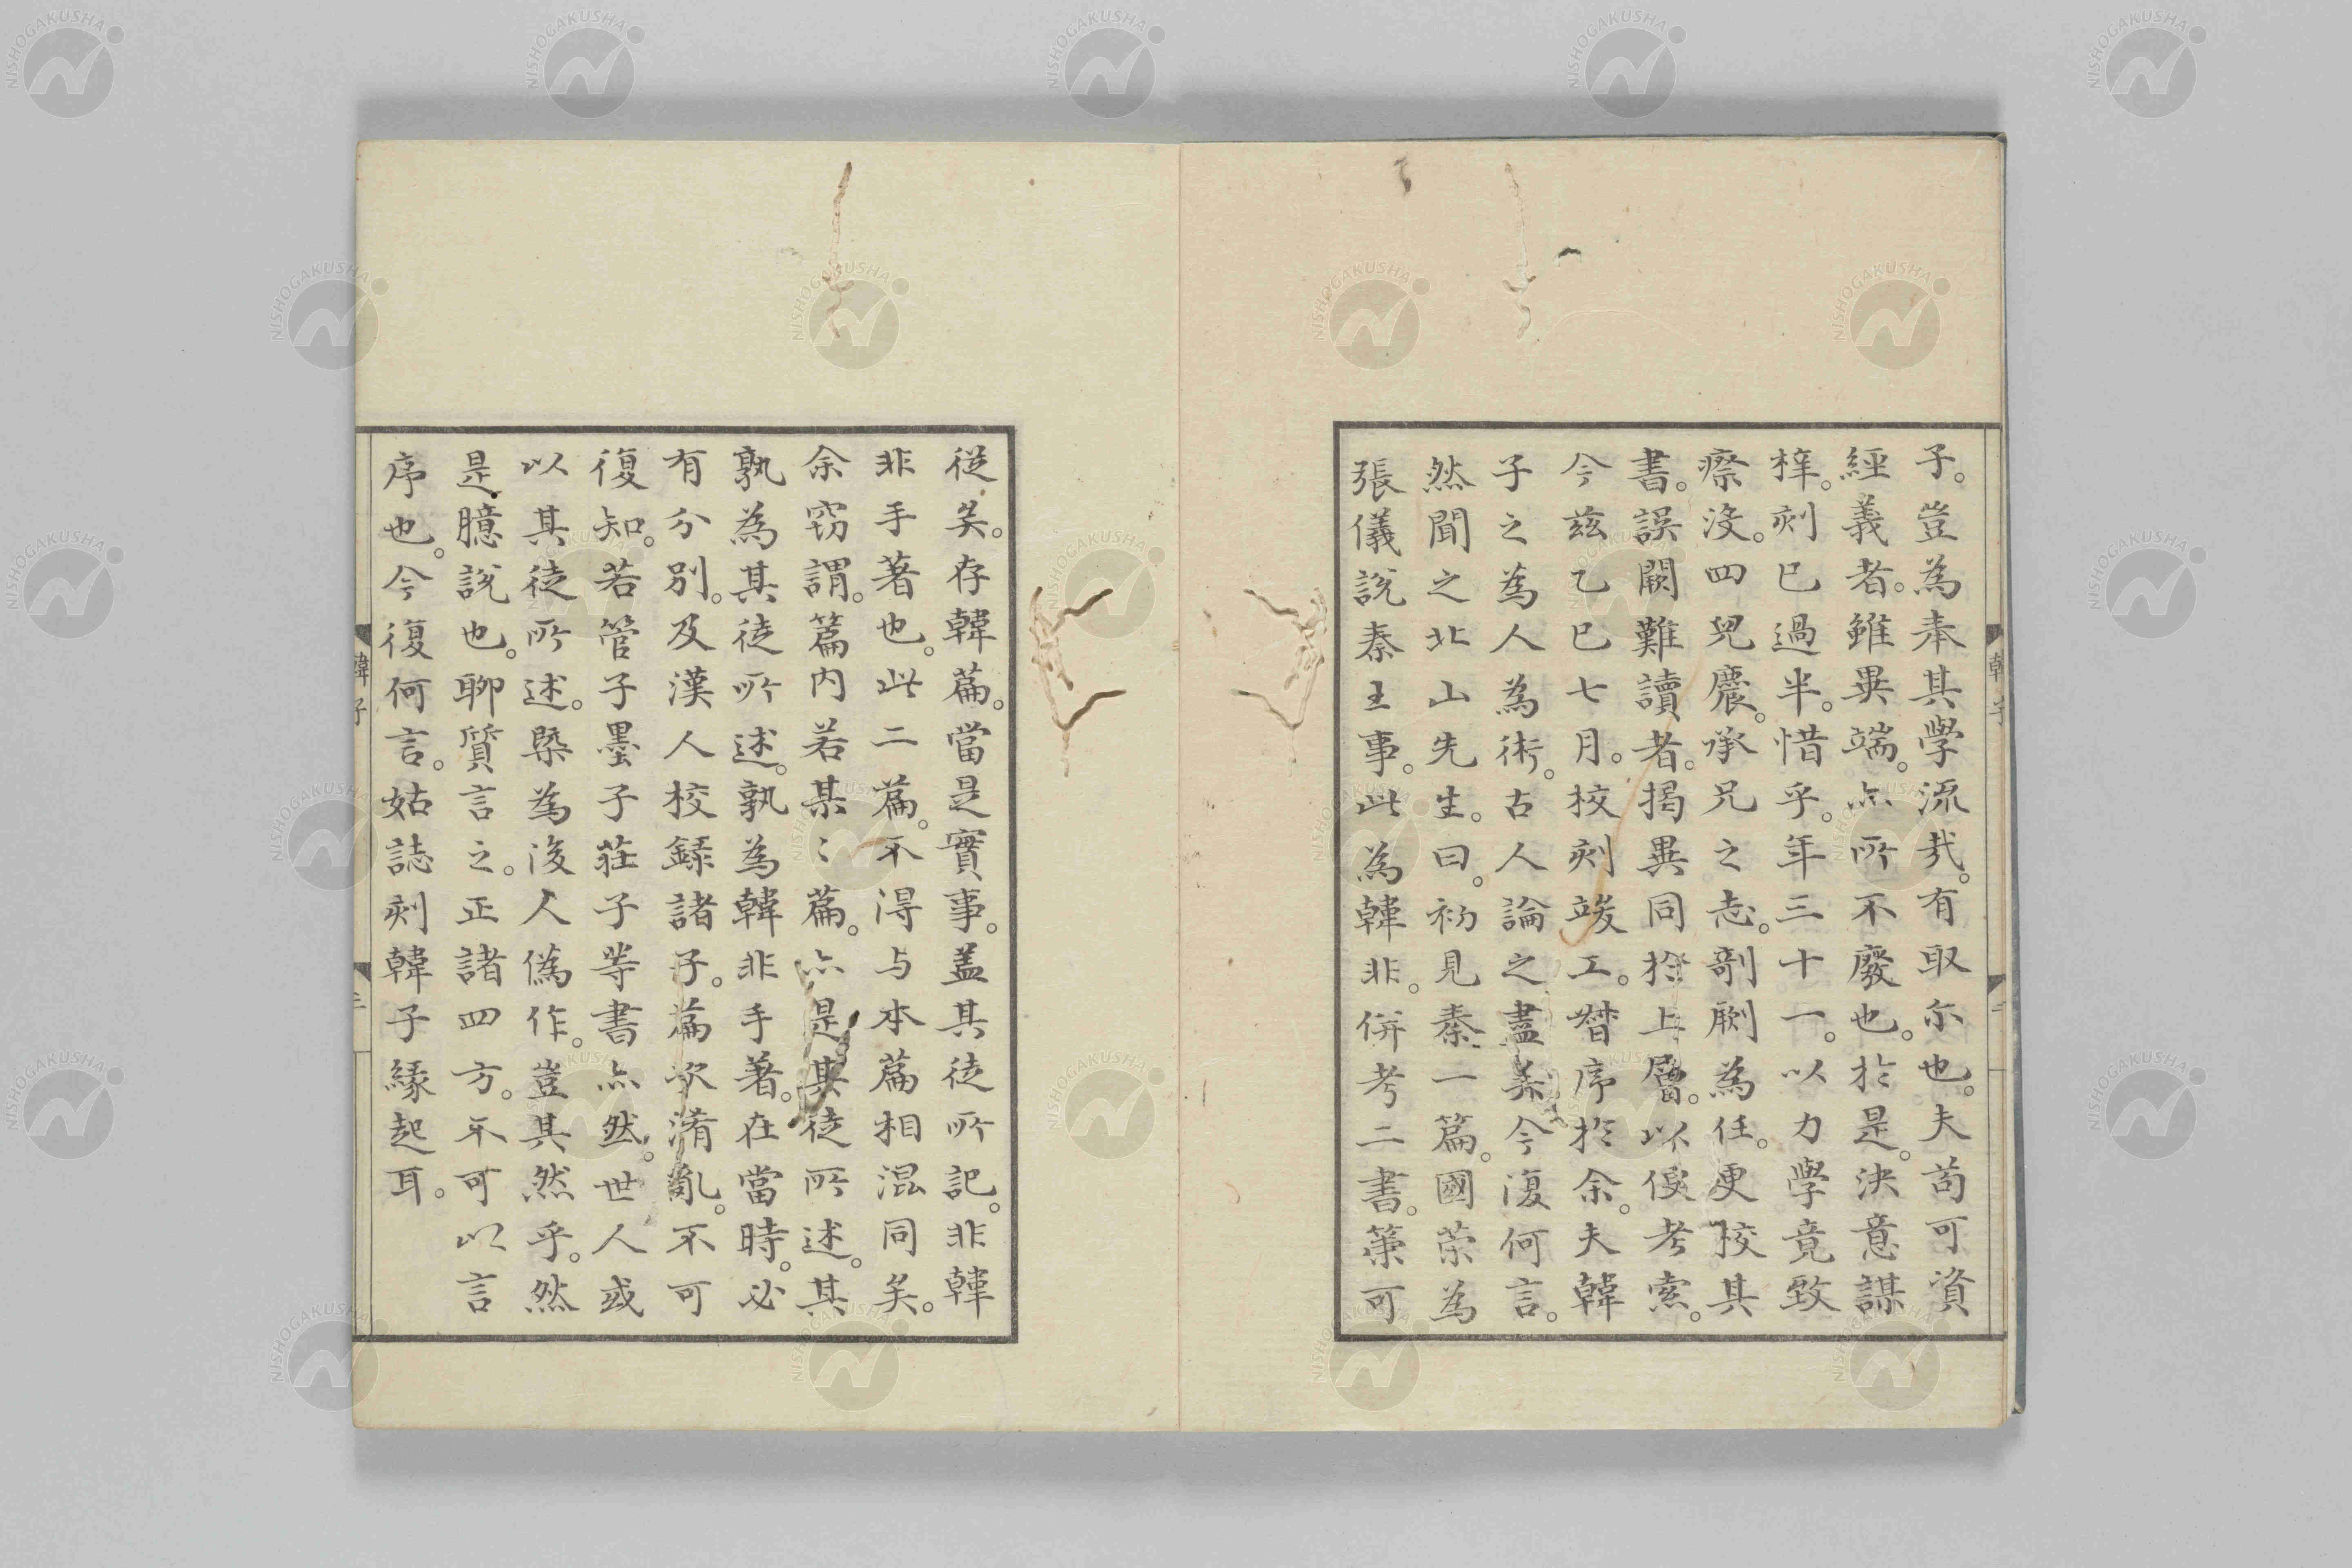 子。豈為奉其學流哉。有取尓也。夫苟可資
經義者。雖異端。亦所不廢也。於是。決意謀
梓。刻已過半。惜乎。年三十一。以力學竟致
瘵没。四兒䴡。承兄之志。剞劂為任。更校其
書。誤闕難讀者。揭異同於上層。以便考索。
今茲乙巳七月。校刻竣工。朁序於余。夫韓
子之為人為術。古人論之盡矣。今復何言。
然聞之北山先生。曰。初見秦一篇。國策為
張儀說秦王事。此為韓非。併考二書。策可
從矣。存韓篇。當是實事。蓋其徒所記。非韓
非手著也。此二篇。不得与本篇相混同矣。
余窃謂。篇内若某〻篇。亦是其徒所述。其
孰為其徒所述。孰為韓非手著。在當時。必
有分別。及漢人校録諸子。篇次淆亂。不可
復知。若管子墨子莊子等書亦然。世人或
以其徒所述。槩為後人偽作。豈其然乎。然
是臆說也。聊質言之。正諸四方。不可以言
序也。今復何言。姑誌刻韓子緣起耳。
韓子
二
韓子
三
NISHOGAKUSHA